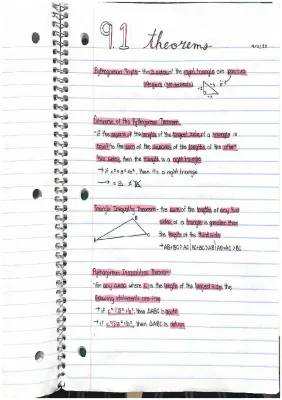 9.1 theorems
Pythagorean Triple - the 3 sides of the right triangle are positive
integers (no decimals)
Converse of the Pythagorean Theorem
- if the square of the length of the longest side of a triangle is
equal to the sum of the squares of the lengths of the other
two sides, then the triangle is a right triangle
→ if c² = a² + b², then it's a right triangle
Triangle Inequality Theorem - the sum of the lengths of any two
sides of a triangle is greater than
the length of the third side
→ AB+BC>AC | AC+BC>AB | AB+AC>BC
Pythagorean Inequalities Theorem
- for any △ABC where c is the length of the longest side, the
following statements are true
→ if c² < a² + b², then △ABC is acute
→ if c² > a² + b², then △ABC is obtuse